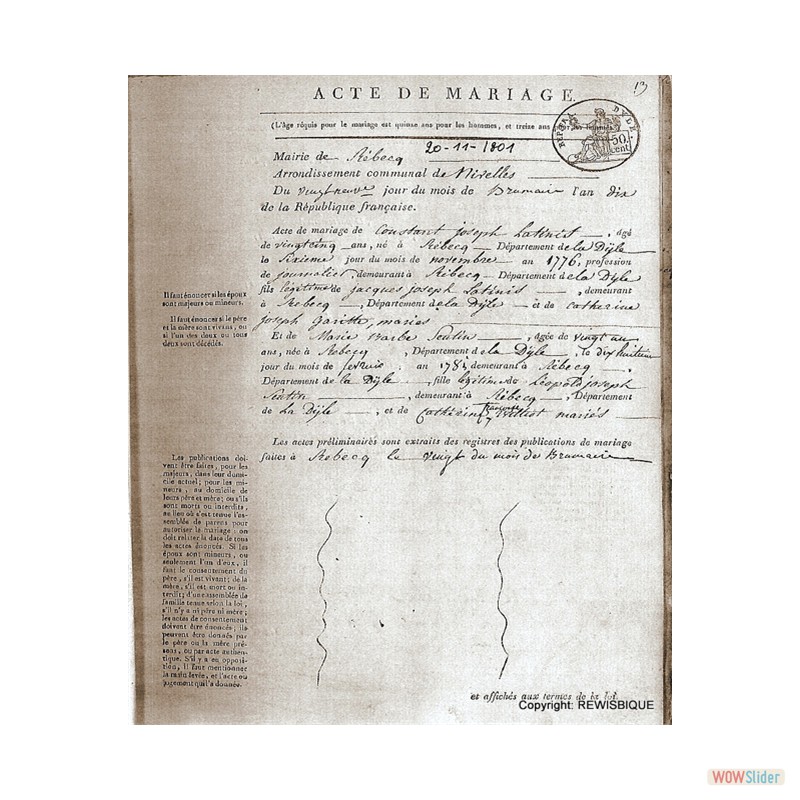 13
ACTE DE MARIAGE.
(L'Age réquis pour le mariage est quinze ans pour les hommes, et treize ans pour les femmes.)
50 cent
Mairie de Rébecq 20-11-1801
Arrondissement communal de Nivelles
Du vingt neuve jour du mois de Brumair l'an dix
de la République française.
Acte de mariage de Constant joseph Latinist, âgé
de vingtcinq ans, né à Rébecq Département de la Dÿle
le Sixieme jour du mois de novembre an 1776, profession
de journalier, demeurant à Rébecq Département de la Dÿle
fils légitime de jacques joseph Latinis, demeurant
à Rebecq, Département de la Dÿle et de catherine
joseph Garitte, mariés
Et de Marie barbe Sentin, âgée de vingt un
ans, née à Rebecq, Département de la Dÿle, le dix huitieme
jour du mois de, an 1781, demeurant à Rébecq
Département de la Dÿle, fille légitime de Léopold joseph
Sentin, demeurant à Rébecq, Département
de La Dÿle, et de Catherine mariés
Les actes préliminaires sont extraits des registres des publications de mariage
faites à Rebecq le vingt du mois de Brumair
et affichés aux termes de la loi.
Il faut énoncer si les époux
sont majeurs ou mineurs.
Il faut énoncer si le père
et la mère sont vivans, ou
si l'un des deux ou tous
deux sont décédés.
Les publications doi-
vent être faites, pour les
majeurs, dans leur domi-
cile actuel; pour les mi-
neurs, au domicile de
leurs père et mère; ou s'ils
sont morts ou interdits,
au lieu où s'est tenue l'as-
semblée de parens pour
autoriser le mariage: on
doit relater la date de tous
les actes énoncés. Si les
époux sont mineurs, ou
seulement l'un d'eux, il
faut le consentement du
père, s'il est vivant; de la
mère, s'il est mort ou in-
terdit; d'une assemblée de
famille tenue selon la loi,
s'il n'y a ni père ni mère;
les actes de consentement
doivent être énoncés, ils
peuvent être donnés par
le père ou la mère pré-
sens, ou par acte authen-
tique. S'il y a opposi-
tion, il faut mentionner
la main levée, et l'acte ou
jugement qui l'a donnée.
Copyright: REWISBIQUE
WOWSlider